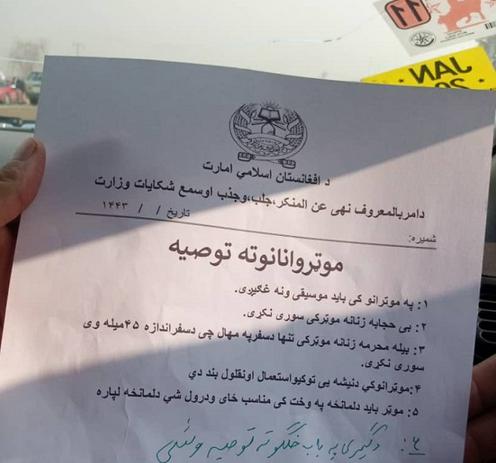 11
JAN
د افغانستان اسلامي امارت
دامربالمعروف نهی عن المنکر،جلب،وجذب اوسمع شکایات وزارت
شمیره: تاریخ / / ۱۴۴۳
موټروانانوته توصیه
۱: په موټرانو کی باید موسیقی ونه غګیږی.
۲: بی حجابه زنانه موټرکی سوری نکړی.
۳: بیله محرمه زنانه موټرکی تنها دسفرپه مهال چی دسفراندازه ۴۵میله وی
سوری نکړی.
۴:موټرانوکي دنیشه یی توکیواستعمال اونقلول بند دي
۵: موټر باید دلمانځه په وخت کی مناسب ځای ودرول شي دلمانځه لپاره
۶: په باب خلګو ته توصیه